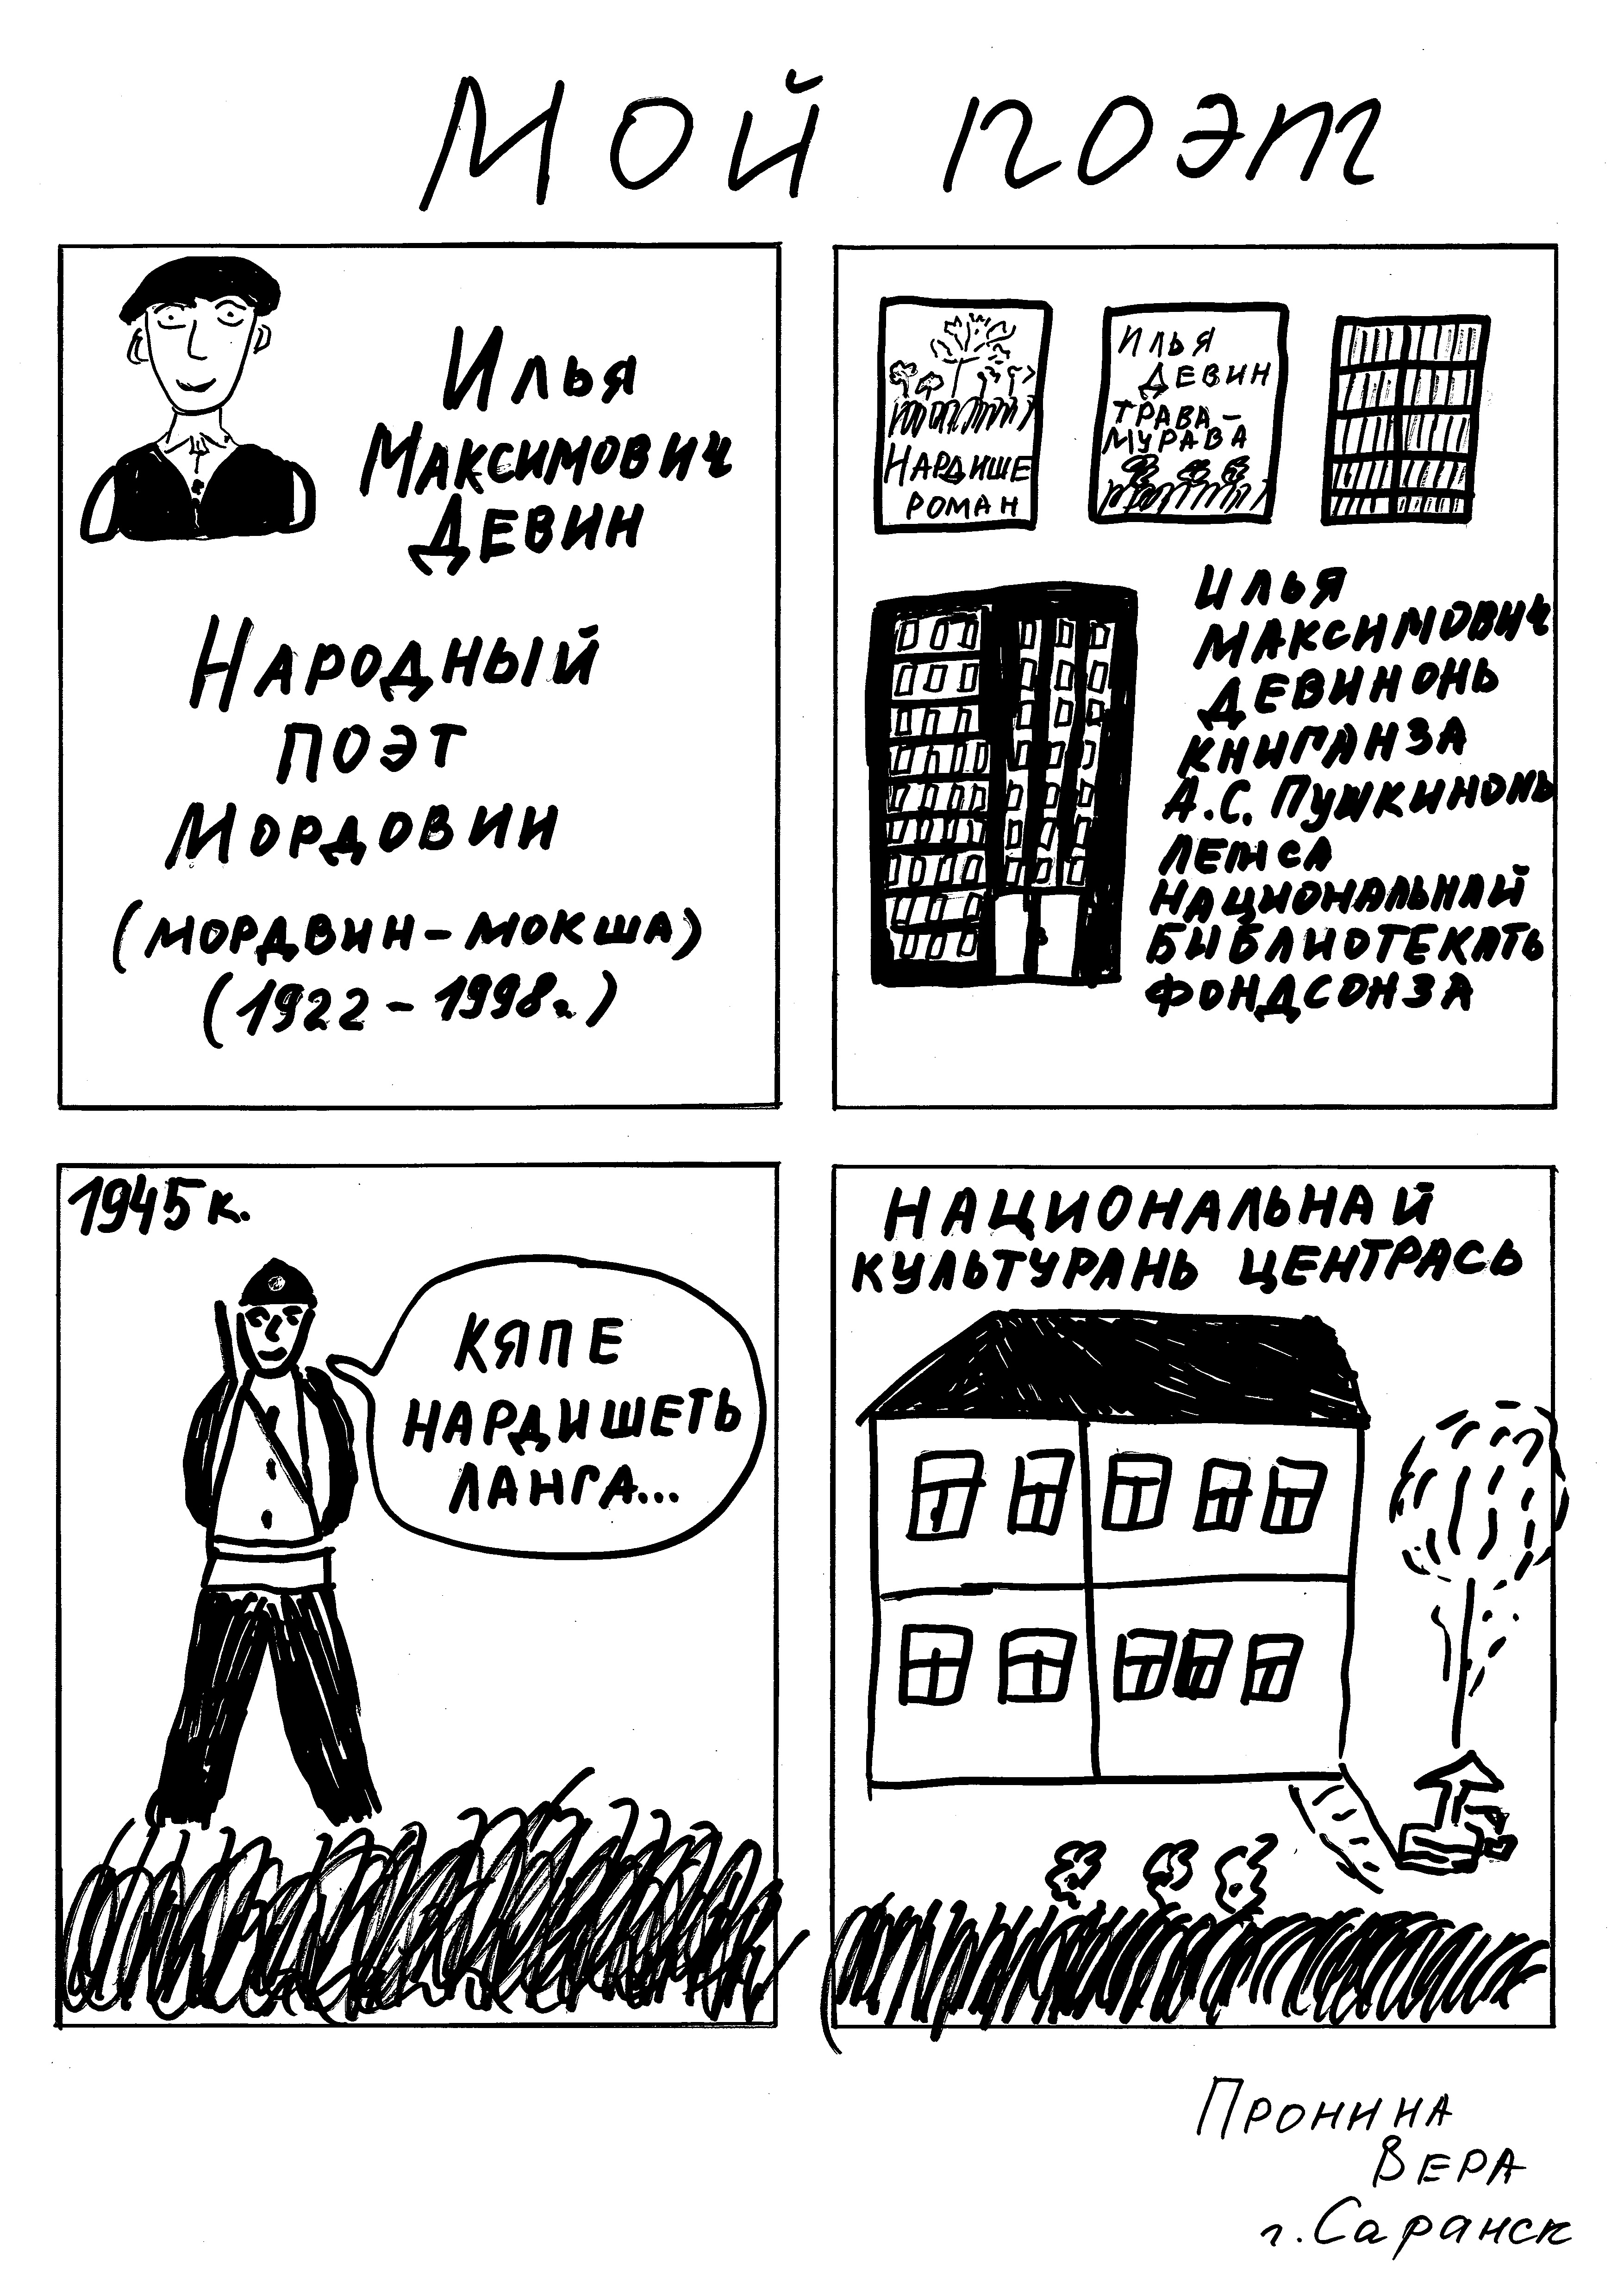 Мой поэт
Илья
Максимович
Девин
Народный
поэт
Мордовии
(мордвин-мокша)
(1922-1998г.)
Нардише
роман
Илья
Девин
Трава-
мурава
Илья
Максимович
Девинонь
книганза
А.С. Пушкинонь
лемса
националънай
библиотекать
фондсонза
1945 к.
Кяпе
нардишеть
ланга...
Национальнай
культурань центрась
Пронина
Вера
г. Саранск